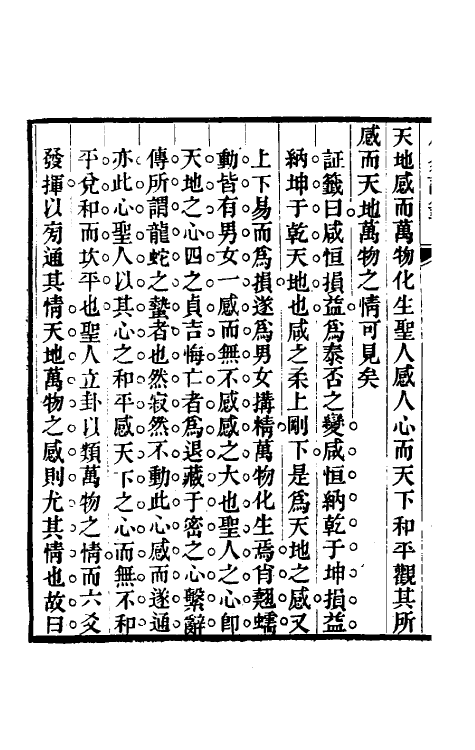 天地感而萬物化生聖人感人心而天下和平觀其所
感而天地萬物之情可見矣
証籤曰咸恒損益為泰否之變咸恒納乾于坤損益
納坤于乾天地也咸之柔上剛下是為天地之感又
上下易而為損遂為男女搆精萬物化生焉肖翹蠕
動皆有男女一感而無不感感之大也聖人之心卽
天地之心四之貞吉悔亡者為退藏于密之心繫辭
傳所謂龍蛇之蟄者也然寂然不動此心感而遂通
亦此心聖人以其心之和平感天下之心而無不和
平兌和而坎平也聖人立卦以類萬物之情而六爻
發揮以㫄通其情天地萬物之感則尤其情也故曰